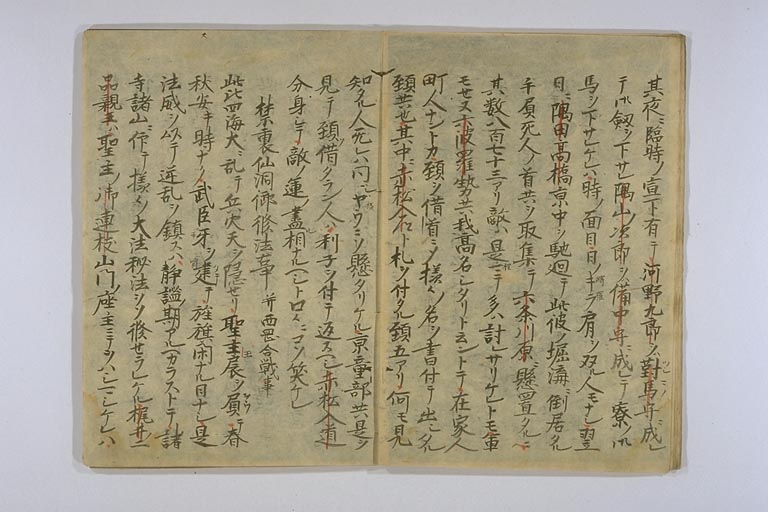 其夜臨時ノ宣下有テ河野九郎ヲハ對馬守ニ成シ
テ御釼ヲ下サレ隅山次郎ヲハ備中守ニ成レテ寮ノ御
馬ヲ下サレケレハ時ノ面目日ノキラ肩ヲ双ル人モナシ翌
日ニ隅田髙橋京中ヲ馳廻テ此彼ノ堀溝ニ倒居タル
手負死人ノ首共ヲ取集テ六条川原ニ懸置タルニ
其数八百七十三アリ敵ハ是マテ多ハ討レサリケレトモ軍
モセヌ六波羅勢共我髙名シタリト云ントテ在家人
町人ナントカ頚ヲ借首ニシテ様々ノ名ヲ書付テ出シタル
頚共也其中ニ赤松入道ト札ヲ付タル頚五アリ何モ見
知タル人死ハ同ヤウニソ懸タリケル京童部共是ヲ
見テ頚借タラン人ハ利子ヲ付テ返スヘシ赤松入道
分身シテ敵ノ運ノ盡相ナルヘシトロ々ニコソ笑ケレ
禁裏仙洞御修法事 并西罡合戦事
此比四海大ニ乱テ兵火天ヲ隠セリ聖主扆ヲ負テ春
秋安キ時ナク武臣牙ヲ建テ旌旗閑ナル日ナシ是
法威ヲ以テ逆乱ヲ鎮スハ静謐期アルヘカラストテ諸
寺諸山ニ作テ様々ノ大法秘法ヲソ修セラレケル梶井二
品親王ハ聖主ノ御連枝山門ノ座主ニテヲハシマシケレハ